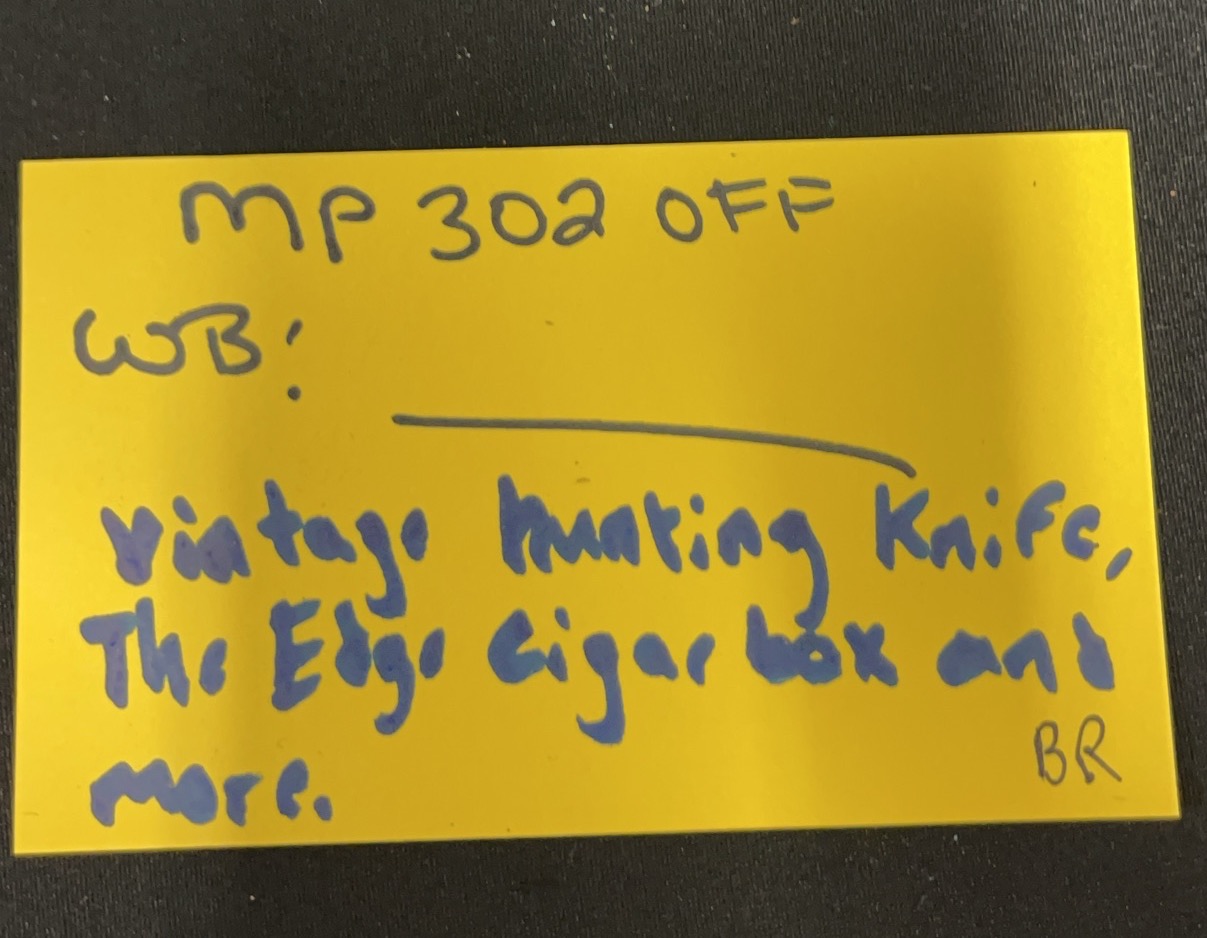 MP 302 OFF
WB:
Vintage hunting Knife,
The Edge Cigar box and
more.
BR